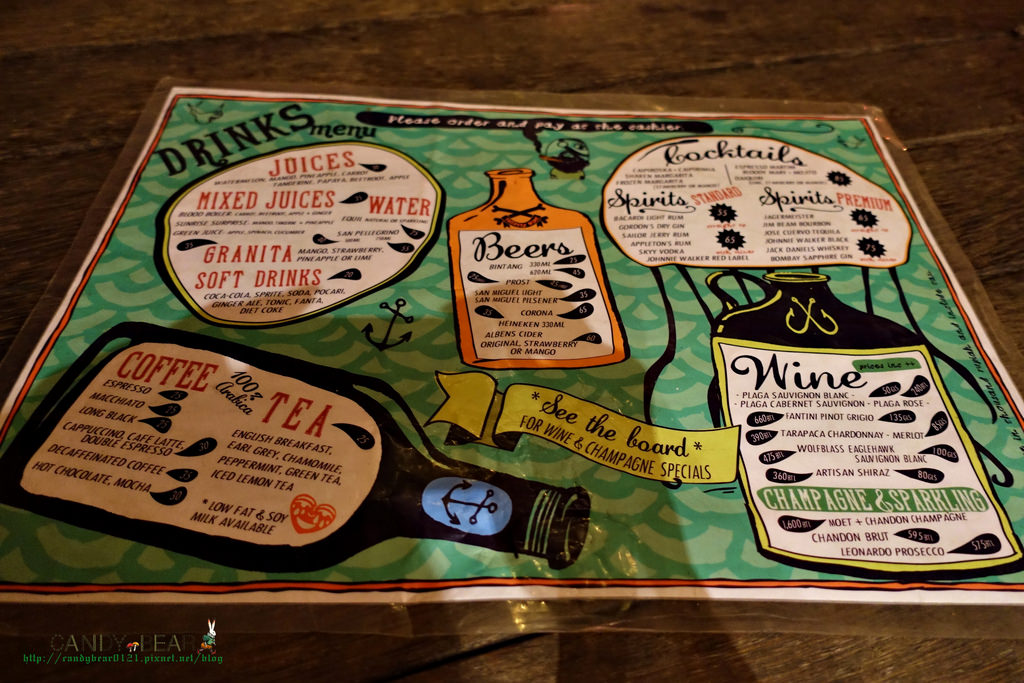 DRINKS menu
Please order and pay at the cashier.
JUICES
WATERMELON, MANGO, PINEAPPLE, CARROT
TANGERINE, PAPAYA, BEETROOT, APPLE
MIXED JUICES
BLOOD BOILER: CARROT, BEETROOT, APPLE + GINGER
SUNRISE SURPRISE: MANGO, TANGERINE + PINEAPPLE
GREEN JUICE: APPLE, SPINACH, CUCUMBER
35
WATER
EQUIL NATURAL OR SPARKLING
SAN PELLEGRINO
GRANITA
MANGO, STRAWBERRY,
PINEAPPLE OR LIME
35
SOFT DRINKS
20
COCA-COLA, SPRITE, SODA, POCARI,
GINGER ALE, TONIC, FANTA,
DIET COKE
Beers
BINTANG 330ML
620ML 45
PROST 25
SAN MIGUEL LIGHT
SAN MIGUEL PILSENER 35
35 CORONA 65
HEINEKEN 330ML
ALBENS CIDER
ORIGINAL, STRAWBERRY
OR MANGO
60
Cocktails
CAIPIROSKA - CAIPIRINHA
SHAKEN MARGARITA
FROZEN MARGARITA
(STRAWBERRY OR MANGO)
ESPRESSO MARTINI
BLOODY MARY - MOJITO
DAIQUIRI
Spirits STANDARD
BACARDI LIGHT RUM
GORDON'S DRY GIN
SAILOR JERRY RUM
APPLETON'S RUM
SKYY VODKA
JOHNNIE WALKER RED LABEL
55
65
Spirits PREMIUM
JAGERMEISTER
JIM BEAM BOURBON
JOSE CUERVO TEQUILA
JOHNNIE WALKER BLACK
JACK DANIELS WHISKEY
BOMBAY SAPPHIRE GIN
65
75
COFFEE
100% Arabica
ESPRESSO 25
MACCHIATO 25
LONG BLACK 25
CAPPUCINO, CAFE LATTE,
DOUBLE ESPRESSO 30
DECAFFEINATED COFFEE 35
HOT CHOCOLATE, MOCHA 30
TEA
25
ENGLISH BREAKFAST,
EARL GREY, CHAMOMILE,
PEPPERMINT, GREEN TEA,
ICED LEMON TEA
*LOW FAT & SOY
MILK AVAILABLE
*See the board*
FOR WINE & CHAMPAGNE SPECIALS
Wine
prices inc ++
- PLAGA SAUVIGNON BLANC - 50GS 240BTL
PLAGA CABERNET SAUVIGNON - PLAGA ROSE -
660BTL FANTINI PINOT GRIGIO 135GS
390BTL TARAPACA CHARDONNAY - MERLOT 85GS
475BTL WOLFBLASS EAGLEHAWK
SAUVIGNON BLANC 100GS
360BTL ARTISAN SHIRAZ 80GS
CHAMPAGNE & SPARKLING
1,600BTL MOET + CHANDON CHAMPAGNE
CHANDON BRUT 595BTL
LEONARDO PROSECCO 575BTL
CANDY BEAR
http://candybear0121.pixnet.net/blog